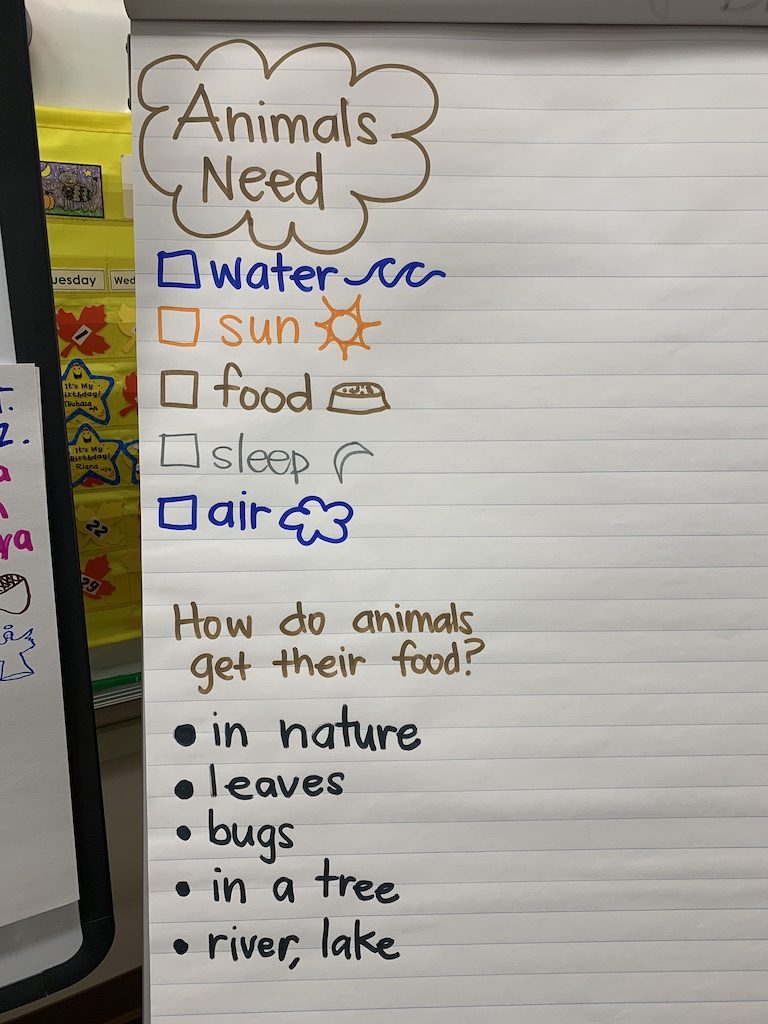 Animals
Need
water
sun
food
sleep
air
How do animals
get their food?
in nature
leaves
bugs
in a tree
river, lake
uesday
Wed
1
It's My
Birthday!
It's My
Birthday!
Riana
22
29